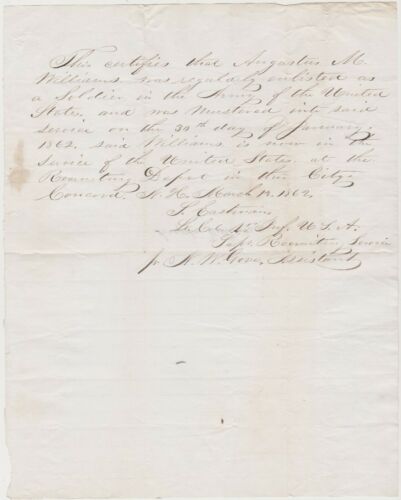 This certifies that Augustus M.
Williams was regularly enlisted as
a Soldier in the Army of the United
States, and was mustered into said
service on the 30th day of January
1862. said Williams is now in the
service of the United States, at the
Recruiting Depot in this City.
Concord. N. H. March 19. 1862.
S. Eastman
Lt. Col. Inf. U. S. A.
Supt. Recruiting Service
pr N. W. Gove, Assistant